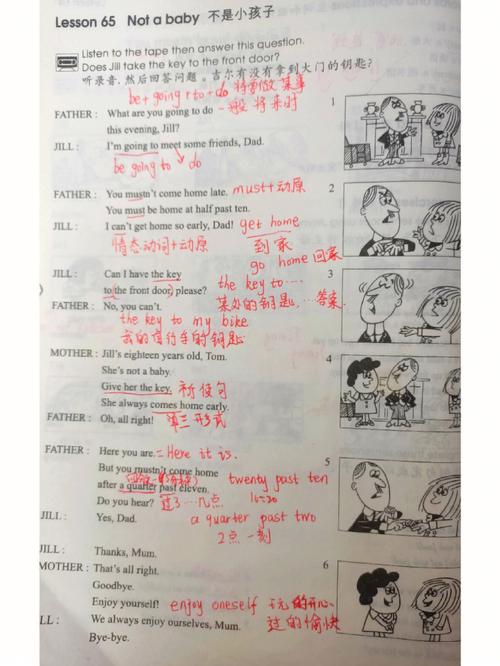 Lesson 65 Not a baby 不是小孩子
Listen to the tape then answer this question.
Does Jill take the key to the front door?
听录音,然后回答问题。吉尔有没有拿到大门的钥匙?
be + going + to + do 将要做某事
FATHER: What are you going to do 一般将来时
this evening, Jill?
JILL: I'm going to meet some friends, Dad.
be going to do
FATHER: You mustn't come home late. must + 动原
You must be home at half past ten.
JILL: I can't get home so early, Dad! get home
情态动词+动原 到家
go home 回家
JILL: Can I have the key
to the front door, please? the key to ...
FATHER: No, you can't. 某处的钥匙, ...答案.
the key to my bike
我的自行车的钥匙
MOTHER: Jill's eighteen years old, Tom.
She's not a baby.
Give her the key. 祈使句
She always comes home early.
FATHER: Oh, all right! 第三形式
FATHER: Here you are. = Here it is.
But you mustn't come home
after a quarter past eleven. twenty past ten
Do you hear? 过了...几点 10:20
JILL: Yes, Dad. a quarter past two
2点一刻
JILL: Thanks, Mum.
MOTHER: That's all right.
Goodbye.
Enjoy yourself! enjoy oneself 玩的开心
LL: We always enjoy ourselves, Mum. 过的愉快
Bye-bye.
1
2
3
4
5
6